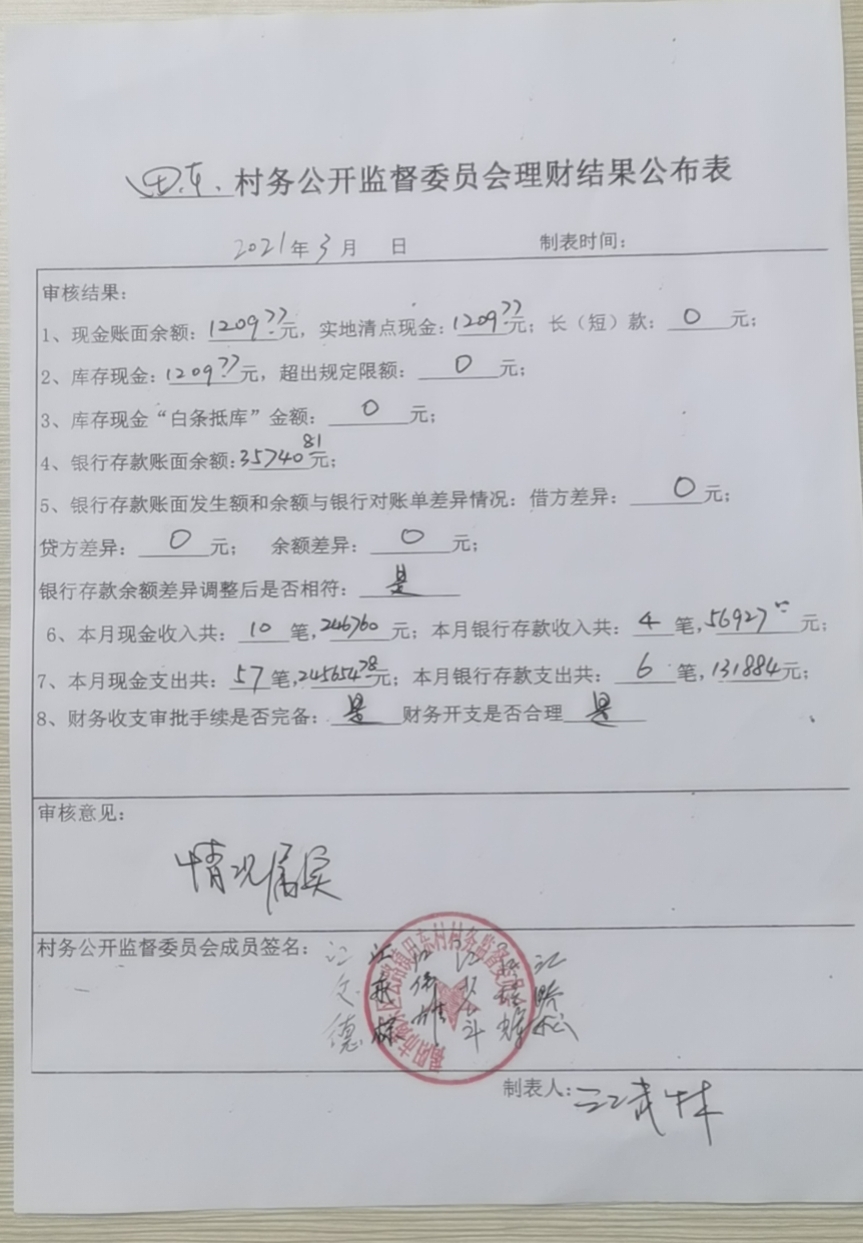 田东 村务公开监督委员会理财结果公布表
2021年3月 日 制表时间：
审核结果：
1、现金账面余额：1209.77元，实地清点现金：1209.77元；长（短）款：0元；
2、库存现金：1209.77元，超出规定限额：0元；
3、库存现金“白条抵库”金额：0元；
4、银行存款账面余额：35740.81元；
5、银行存款账面发生额和余额与银行对账单差异情况：借方差异：0元；
贷方差异：0元； 余额差异：0元；
银行存款余额差异调整后是否相符：是
6、本月现金收入共：10笔，246760元；本月银行存款收入共：4笔，56927元；
7、本月现金支出共：57笔，245654.78元；本月银行存款支出共：6笔，131884元；
8、财务收支审批手续是否完备：是 财务开支是否合理 是
审核意见：
情况属实
村务公开监督委员会成员签名：
江文德
制表人：江武林